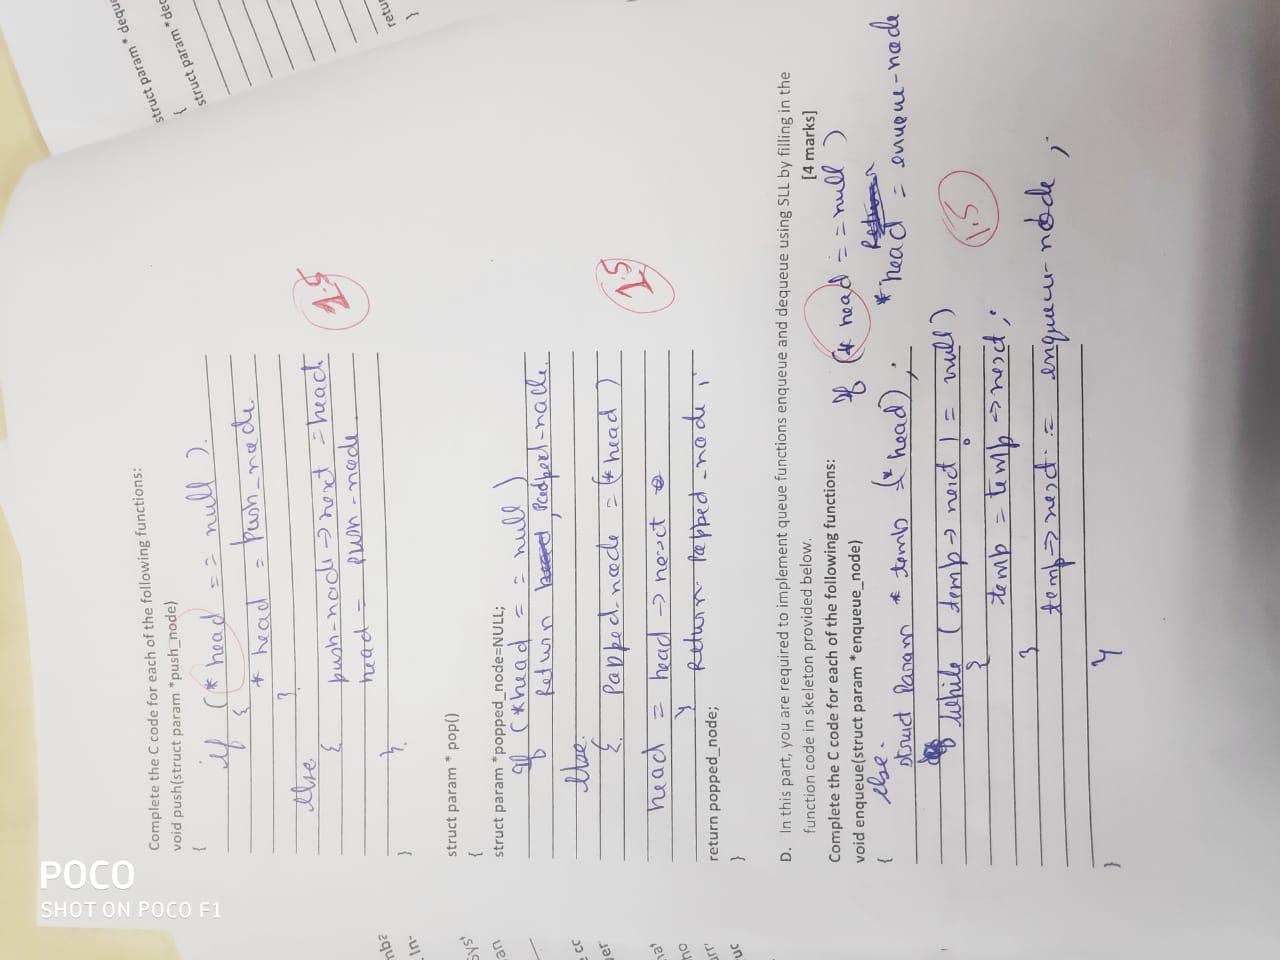 POCO
SHOT ON POCO F1
Complete the C code for each of the following functions:
void push(struct param *push_node)
{
if (* head == null).
{
* head = Push_node
}
else
{ push-node->next = head
head = push-node
}
}
1.5
struct param * pop()
{
struct param *popped_node=NULL;
If (*head == null)
Return
Else.
{ Popped-node = (* head)
head = head -> next
}
Return Popped-node;
return popped_node;
}
1.5
D. In this part, you are required to implement queue functions enqueue and dequeue using SLL by filling in the
function code in skeleton provided below.
[4 marks]
Complete the C code for each of the following functions:
void enqueue(struct param *enqueue_node)
{
If (* head == null)
*head = enueue-node
else.
struct Param * temb (* head);
while (temp-> next != null)
{
temp = temp->next;
}
temp->next = enqueue-node;
}
}
1.5
struct param * deque
{
struct param *dec
retur
}